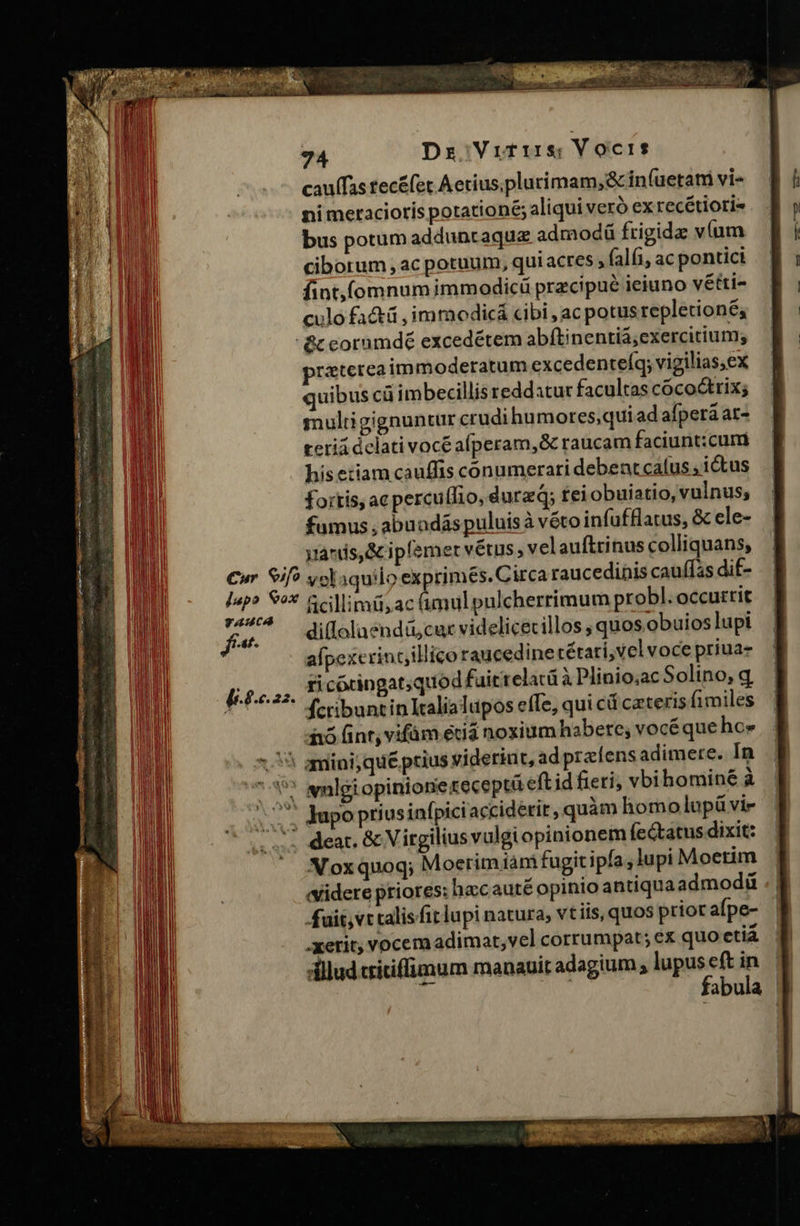 74 De Vitiis Vocis
cauſſas recẽſet Aetius, plurimam, & inſuetam vi-
ni meracioris potationẽ; aliqui verò ex recẽtiori-
bus potum adduntaquæ admodũ frigidæ vſum
ciborum, ac potuum, qui acres, ſalſi, ac pontici
ſint, ſomnum immodicũ præcipuè ieiuno vẽtri-
culo factũ, immodicã cibi, ac potus repletionẽ,
& eorũmdẽ excedẽtem abſtinentiã, exercitium,
præterea immoderatum excedenteſq; vigilias, ex
quibus cũ imbecillis reddatur facultas cõcoctrix;
multi gignuntur crudi humores, qui ad aſperã ar-
teriã delati vocẽ aſperam, & raucam faciunt: cum
his etiam cauſſis cõnumerari debent caſus, ictus
fortis, ac percuſſio, duræq; rei obuiatio, vulnus,
fumus, abundãs puluis à vẽto inſufflatus, & ele-
uatus, & ipſemet vẽtus, vel auſtrinus colliquans,
Cur viſo vel aquilo exprimẽs. Circa raucedinis cauſſas dif-
lupo vox ficillimũ, ac ſimul pulcherrimum probl. occurrit
rauca diſſoluendũ, cur videlicet illos, quos obuios lupi
fiat. aſpexerint, illico raucedine tẽtari, vel voce priua-
ri cõtingat, quod fuit relatũ à Plinio, ac Solino, q
li. 8. c. 22. ſcribunt in Italia lupos eſſe, qui cũ cæteris ſimiles
nõ ſint, viſum etiã noxium habere, vocẽque ho-
mini, quẽ prius viderint, ad præſens adimere. In
vulgi opinione receptũ eſt id fieri, vbi hominẽ à
lupo prius inſpici acciderit, quàm homo lupũ vi-
deat. & Virgilius vulgi opinionem ſectatus dixit:
Vox quoq; Moerim iam fugit ipſa, lupi Moerim
videre priores: hæc autẽ opinio antiqua admodũ
fuit, vt talis ſit lupi natura, vt iis, quos prior aſpe-
xerit, vocem adimat, vel corrumpat; ex quo etiã
illud tritiſſimum manauit adagium, lupus eſt in
fabula